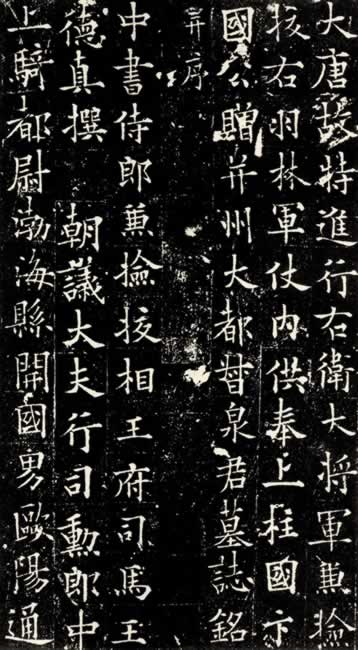 大唐故特進行右衛大將軍兼撿
挍右羽林軍仗內供奉上柱國卞
國公贈并州大都督泉君墓誌銘
并序
中書侍郎兼撿挍相王府司馬王
德真撰　朝議大夫行司勳郎中
上騎都尉渤海縣開國男歐陽通